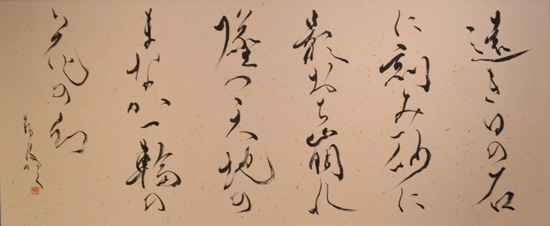 遠き日の石
に刻み砂に
影おち崩れ
墜つ天地の
まなか一輪の
花の幻